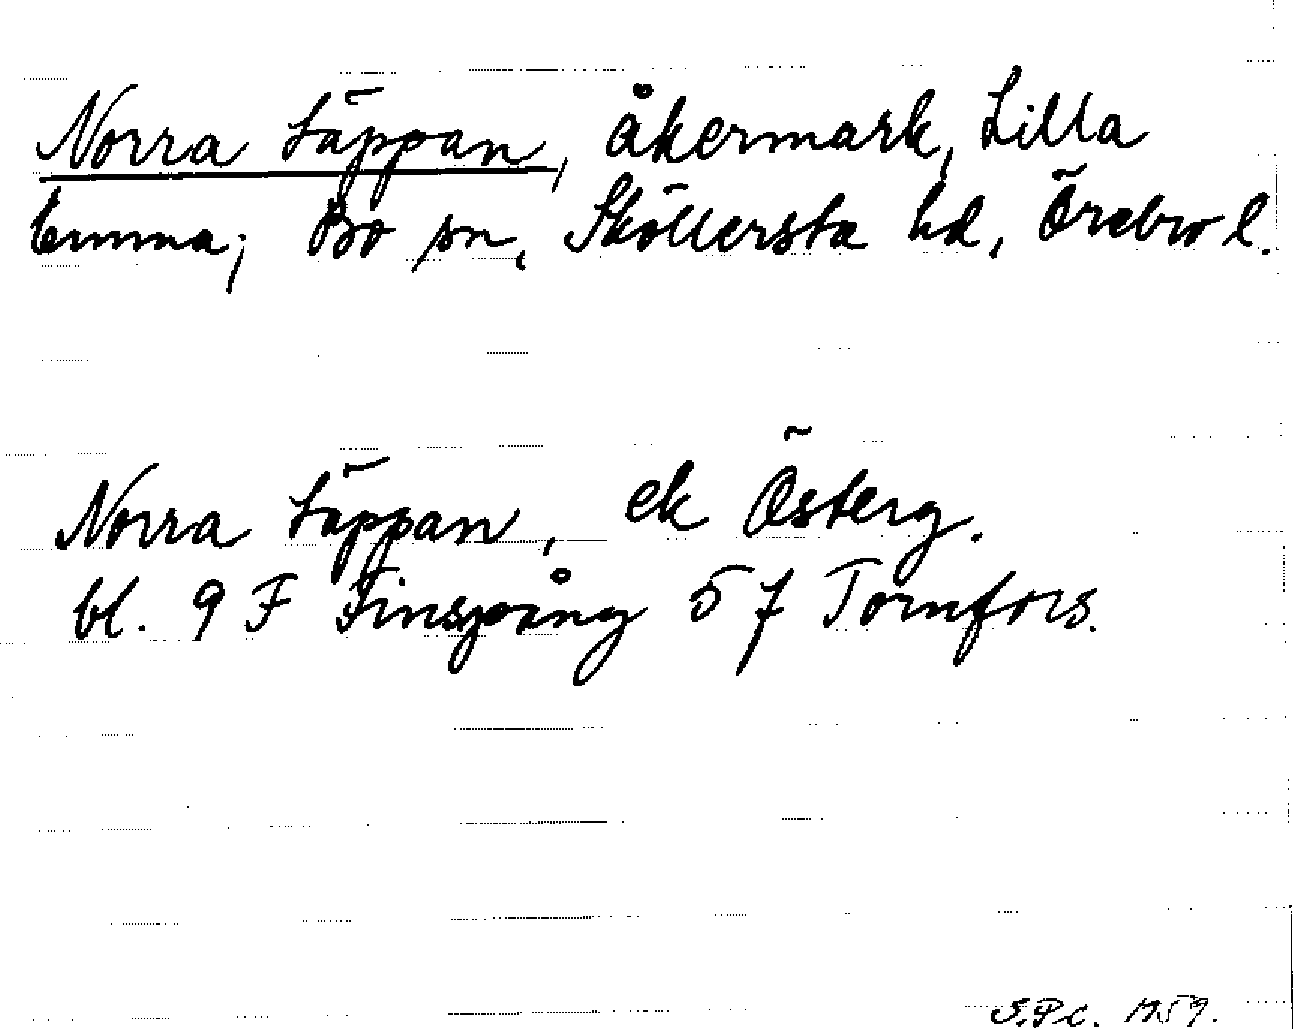 Norra Täppan, åkermark, Lilla
Emma; Bo sn, Sköllersta hd, Örebro l.
Norra Täppan, ek Österg.
bl. 9 F Finspång 5 f Tornfors.
S.P.C. 1959.